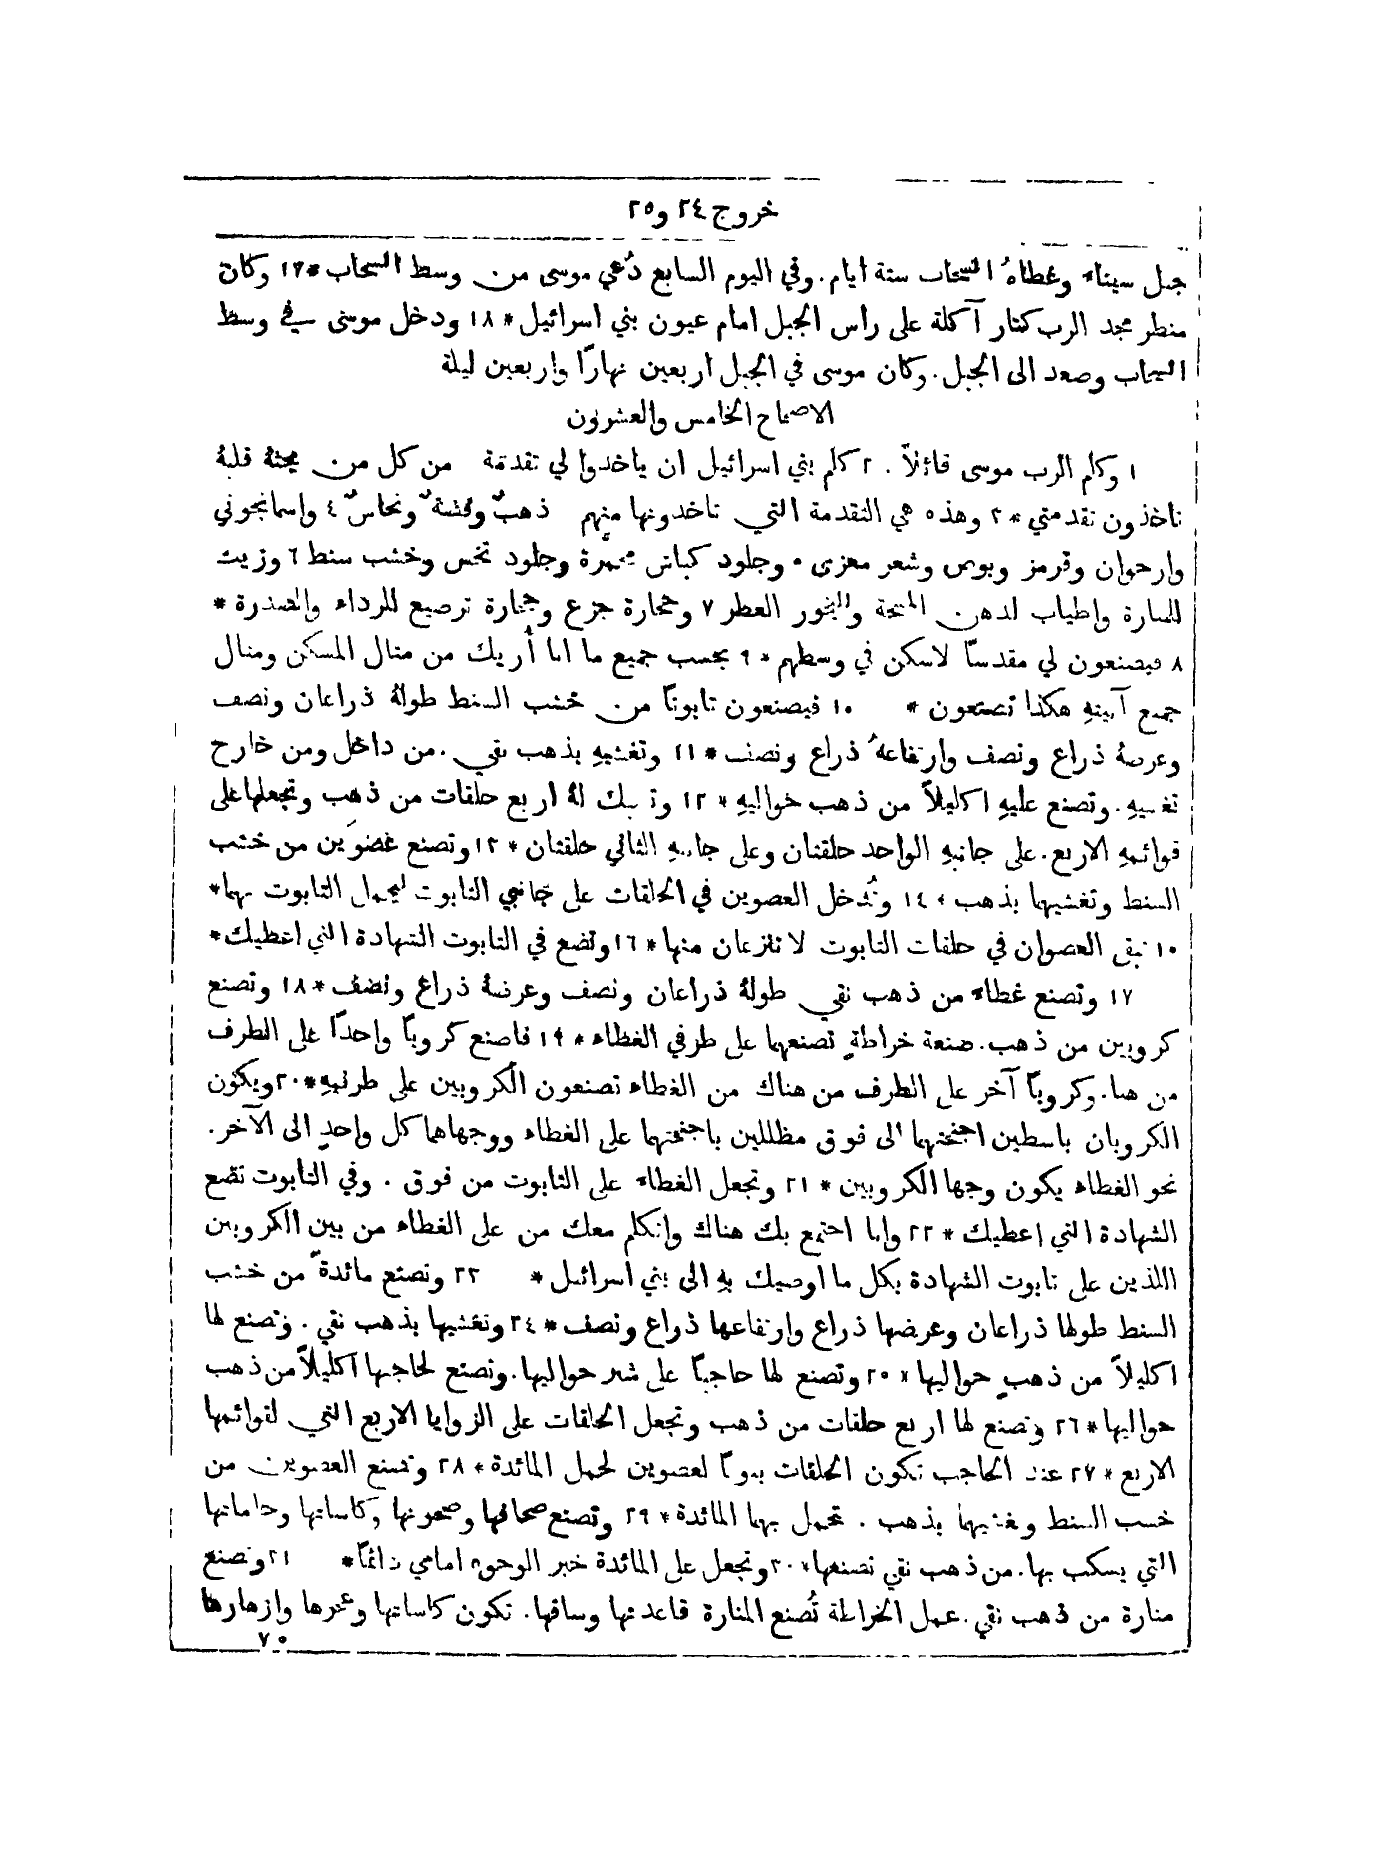 خروج ٢٤ و٢٥
جبل سيناء وغطاهُ السحاب ستة ايام. وفي اليوم السابع دُعي موسى من وسط السحاب * ١٧ وكان
منظر مجد الرب كنار آكلة على راس الجبل امام عيون بني اسرائيل * ١٨ ودخل موسى في وسط
السحاب وصعد الى الجبل. وكان موسى في الجبل اربعين نهارًا واربعين ليلة
الاصحاح الخامس والعشرون
١ وكلم الرب موسى قائلاً . ٢ كلم بني اسرائيل ان ياخذوا لي تقدمة من كل من يحثهُ قلبهُ
تاخذون تقدمتي * ٣ وهذه هي التقدمة التي تاخذونها منهم ذهبٌ وفضةٌ ونحاسٌ ٤ واسمانجوني
وارجوان وقرمز وبوص وشعر معزى ٥ وجلود كباش محمَّرة وجلود تخس وخشب سنط ٦ وزيت
للمنارة واطياب لدهن المسحة والبخور العطر ٧ وحجارة جزع وحجارة ترصيع للرداء والصدرة *
٨ فيصنعون لي مقدسًا لاسكن في وسطهم * ٩ بحسب جميع ما انا أُريك من مثال المسكن ومثال
جميع آنيتهِ هكذا تصنعون * ١٠ فيصنعون تابوتًا من خشب السنط طولهُ ذراعان ونصف
وعرضهُ ذراع ونصف وارتفاعهُ ذراع ونصف * ١١ وتغشيهِ بذهب نقي . من داخل ومن خارج
تغشيهِ. وتصنع عليهِ اكليلاً من ذهب حواليهِ * ١٢ وتسبك لهُ اربع حلقات من ذهب وتجعلها على
قوائمهِ الاربع. على جانبهِ الواحد حلقتان وعلى جانبهِ الثاني حلقتان * ١٣ وتصنع عصوَين من خشب
السنط وتغشيهما بذهب * ١٤ وتُدخل العصوين في الحلقات على جانبي التابوت ليُحمل التابوت بهما*
١٥ تبقى العصوان في حلقات التابوت لا تنزعان منها * ١٦ وتضع في التابوت الشهادة التي اعطيك*
١٧ وتصنع غطاءً من ذهب نقي طولهُ ذراعان ونصف وعرضهُ ذراع ونصف * ١٨ وتصنع
كروبين من ذهب. صنعة خراطةٍ تصنعهما على طرفي الغطاء * ١٩ فاصنع كروبًا واحدًا على الطرف
من هنا. وكروبًا آخر على الطرف من هناك من الغطاء تصنعون الكروبين على طرفيهِ* ٢٠ ويكون
الكروبان باسطين اجنحتهما الى فوق مظللين باجنحتهما على الغطاء ووجهاهما كل واحدٍ الى الآخر.
نحو الغطاء يكون وجها الكروبين * ٢١ وتجعل الغطاء على التابوت من فوق . وفي التابوت تضع
الشهادة التي اعطيك * ٢٢ وانا اجتمع بك هناك واتكلم معك من على الغطاء من بين الكروبين
اللذين على تابوت الشهادة بكل ما اوصيك بهِ الى بني اسرائيل * ٢٣ وتصنع مائدةً من خشب
السنط طولها ذراعان وعرضها ذراع وارتفاعها ذراع ونصف * ٢٤ وتغشيها بذهب نقي . وتصنع لها
اكليلاً من ذهبٍ حواليها * ٢٥ وتصنع لها حاجبًا على شبر حواليها. وتصنع لحاجبها اكليلاً من ذهب
حواليها* ٢٦ وتصنع لها اربع حلقات من ذهب وتجعل الحلقات على الزوايا الاربع التي لقوائمها
الاربع * ٢٧ عند الحاجب تكون الحلقات بيوتًا لعصوين لحمل المائدة * ٢٨ وتصنع العصوين من
خشب السنط وتغشيهما بذهب . فتحمل بهما المائدة * ٢٩ وتصنع صحافها وصحونها وكاساتها وجاماتها
التي يسكب بها. من ذهب نقي تصنعها* ٣٠ وتجعل على المائدة خبز الوجوه امامي دائمًا* ٣١ وتصنع
منارة من ذهب نقي. عمل الخراطة تُصنع المنارة قاعدتها وساقها. تكون كاساتها وعجرها وازهارها
٧٥